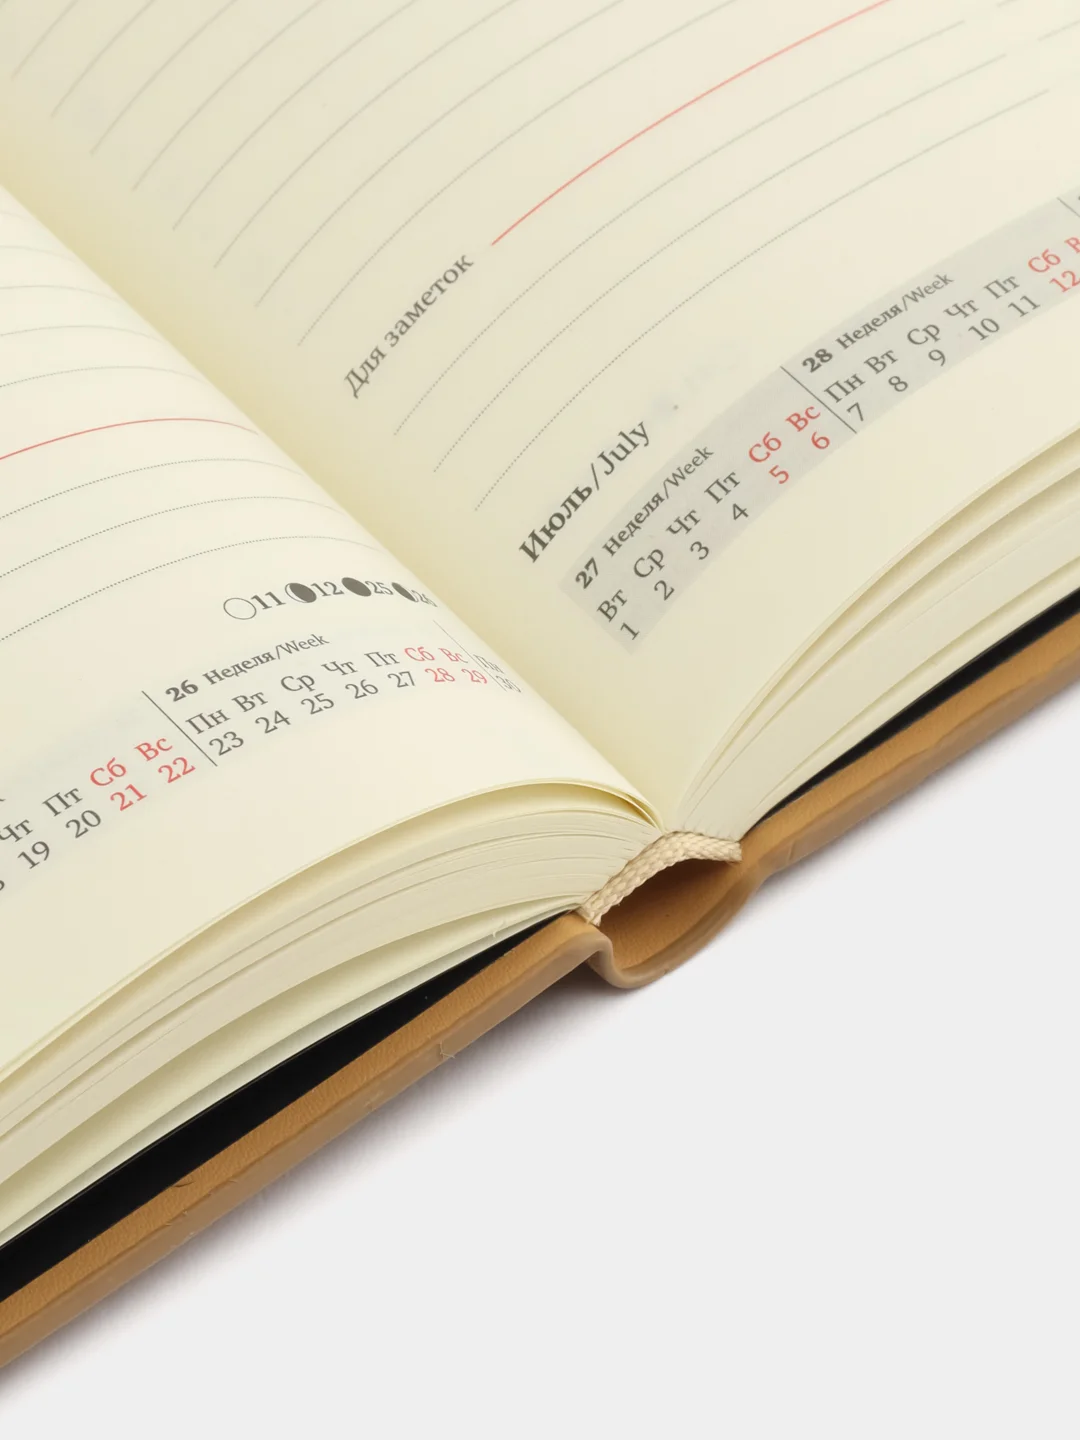 11 12 25 26
26 Неделя/Week
Чт Пт Сб Вс Пн Вт Ср Чт Пт Сб Вс Пн
19 20 21 22 23 24 25 26 27 28 29 30
Для заметок
Июль/July
27 Неделя/Week 28 Неделя/Week
Вт Ср Чт Пт Сб Вс Пн Вт Ср Чт Пт Сб
1 2 3 4 5 6 7 8 9 10 11 12